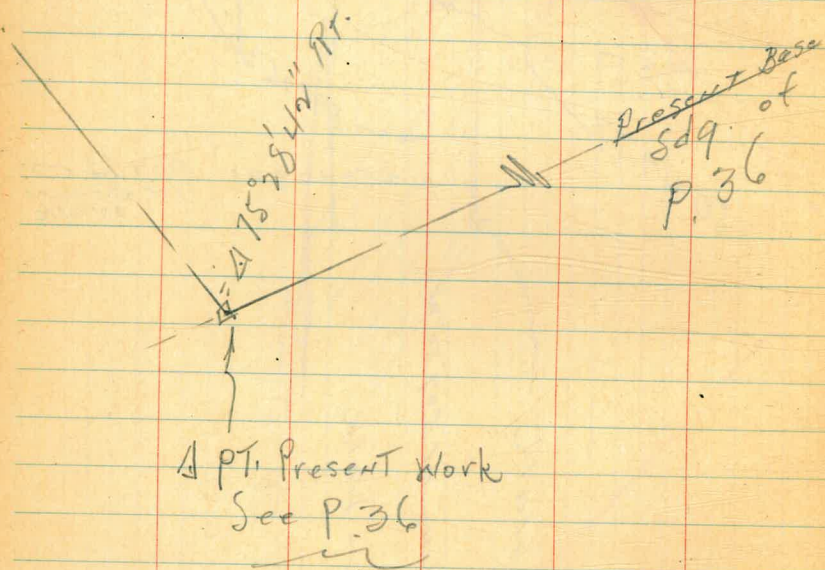 Δ 75°28'42" Rt.
Present Base
of
P. 36
Δ PT. Present Work
See P. 36